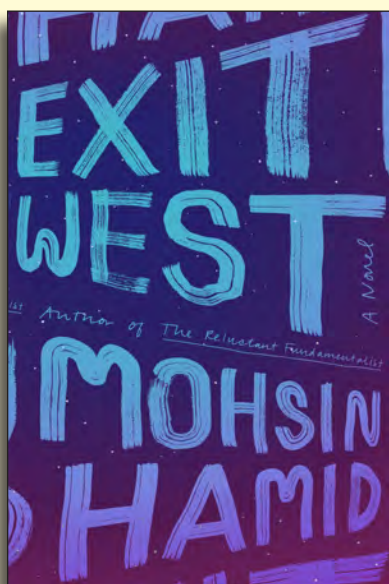 HA
EXIT
WEST
A Novel
ist Author of The Reluctant Fundamentalist
MOHSIN
HAMID